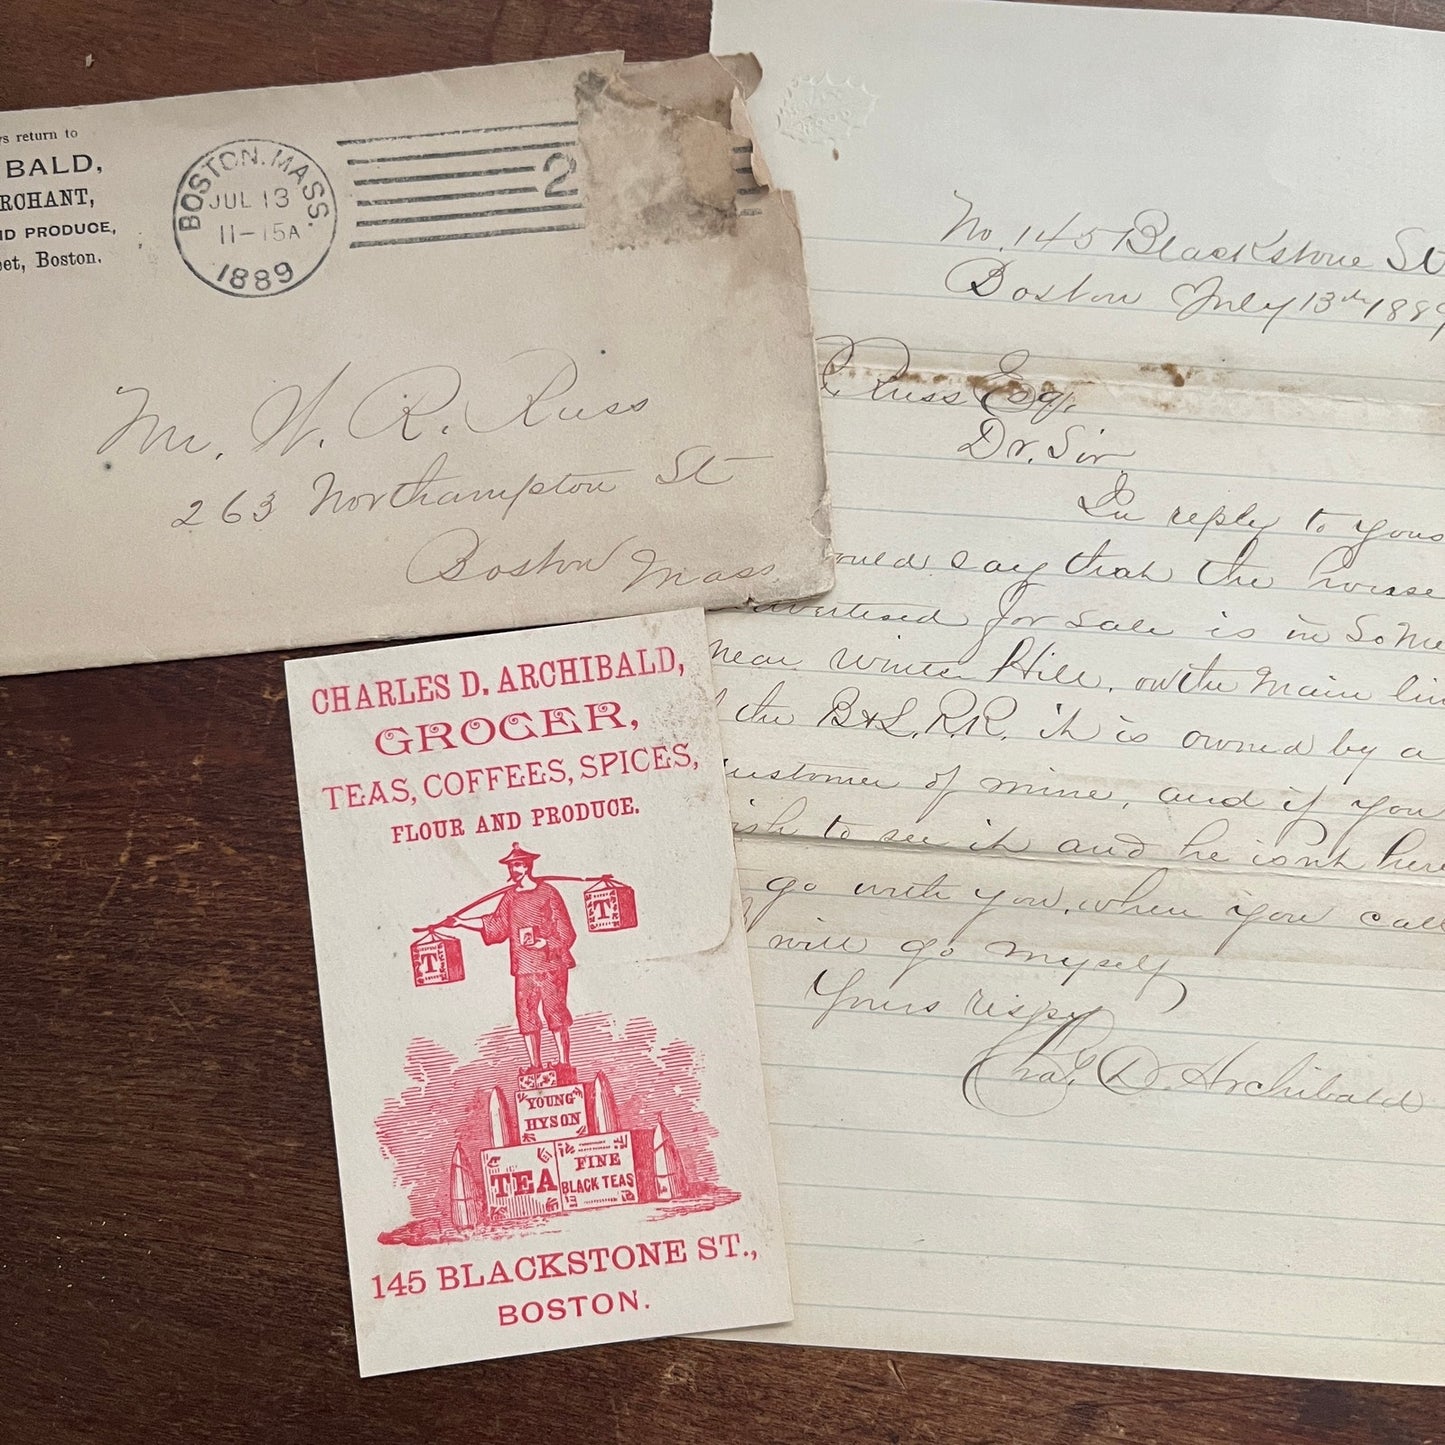 return to
BALD,
RCHANT,
ND PRODUCE,
eet, Boston.
BOSTON, MASS.
JUL 13
11-15A
1889
2
Mr. W. R. Russ
263 Northampton St
Boston Mass.
No. 145 Blackstone St
Boston July 13th 1889
Russ Esq.
Dr. Sir
In reply to yours
would say that the house
advertised for sale is in Some
near Winter Hill, on the Main lin
the B&L.R.R. it is owned by a
customer of mine, and if you
wish to see it and he isnt here
go with you, when you call
will go myself
Yours respy
Chas. D. Archibald
CHARLES D. ARCHIBALD,
GROCER,
TEAS, COFFEES, SPICES,
FLOUR AND PRODUCE.
T
T
YOUNG
HYSON
TEA
FINE
BLACK TEAS
145 BLACKSTONE ST.,
BOSTON.